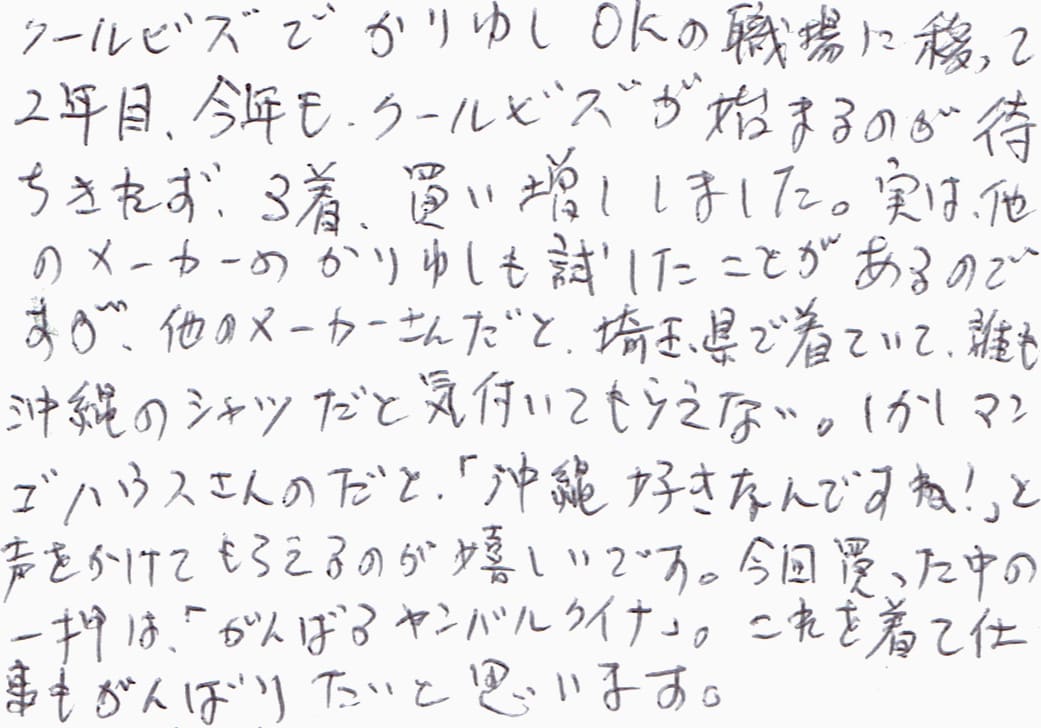 クールビズでかりゆしOKの職場に移って
2年目、今年も、クールビズが始まるのが待
ちきれず、3着、買い増ししました。実は、他
のメーカーのかりゆしも試したことがあるので
すが、他のメーカーさんだと、埼玉県で着ていて、誰も
沖縄のシャツだと気付いてもらえない。しかしマン
ゴハウスさんのだと、「沖縄好きなんですね!」と
声をかけてもらえるのが嬉しいです。今回買った中の
一押は、「がんばるヤンバルクイナ」。これを着て仕
事もがんばりたいと思います。